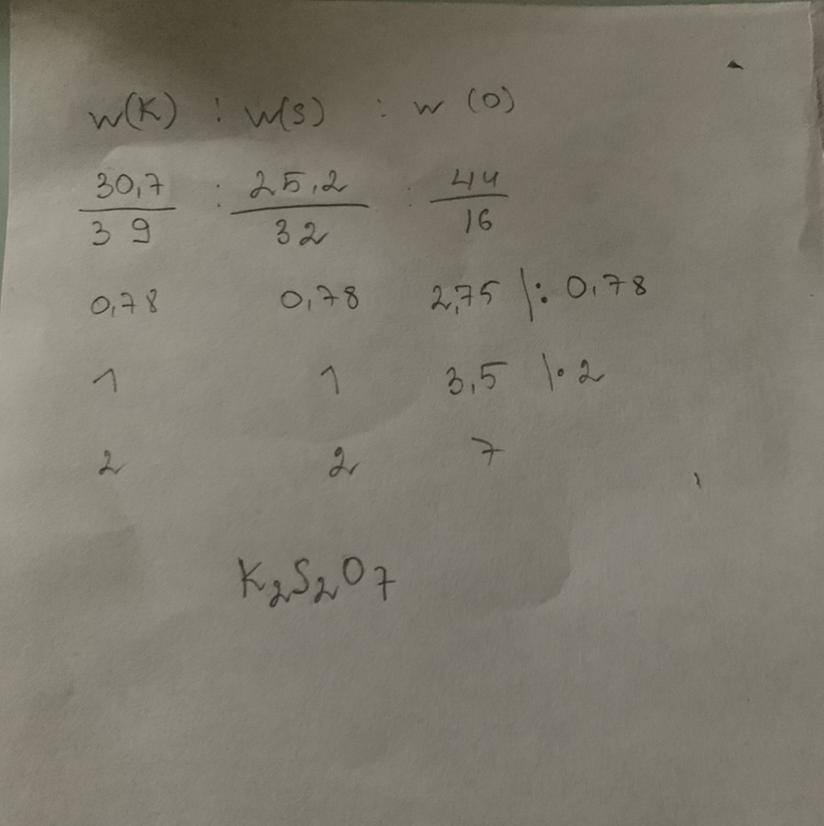 w(K) : w(S) : w (O)
30,7 : 25,2 : 44
39 32 16
0,78 0,78 2,75 |: 0,78
1 1 3,5 |· 2
2 2 7
K₂S₂O₇